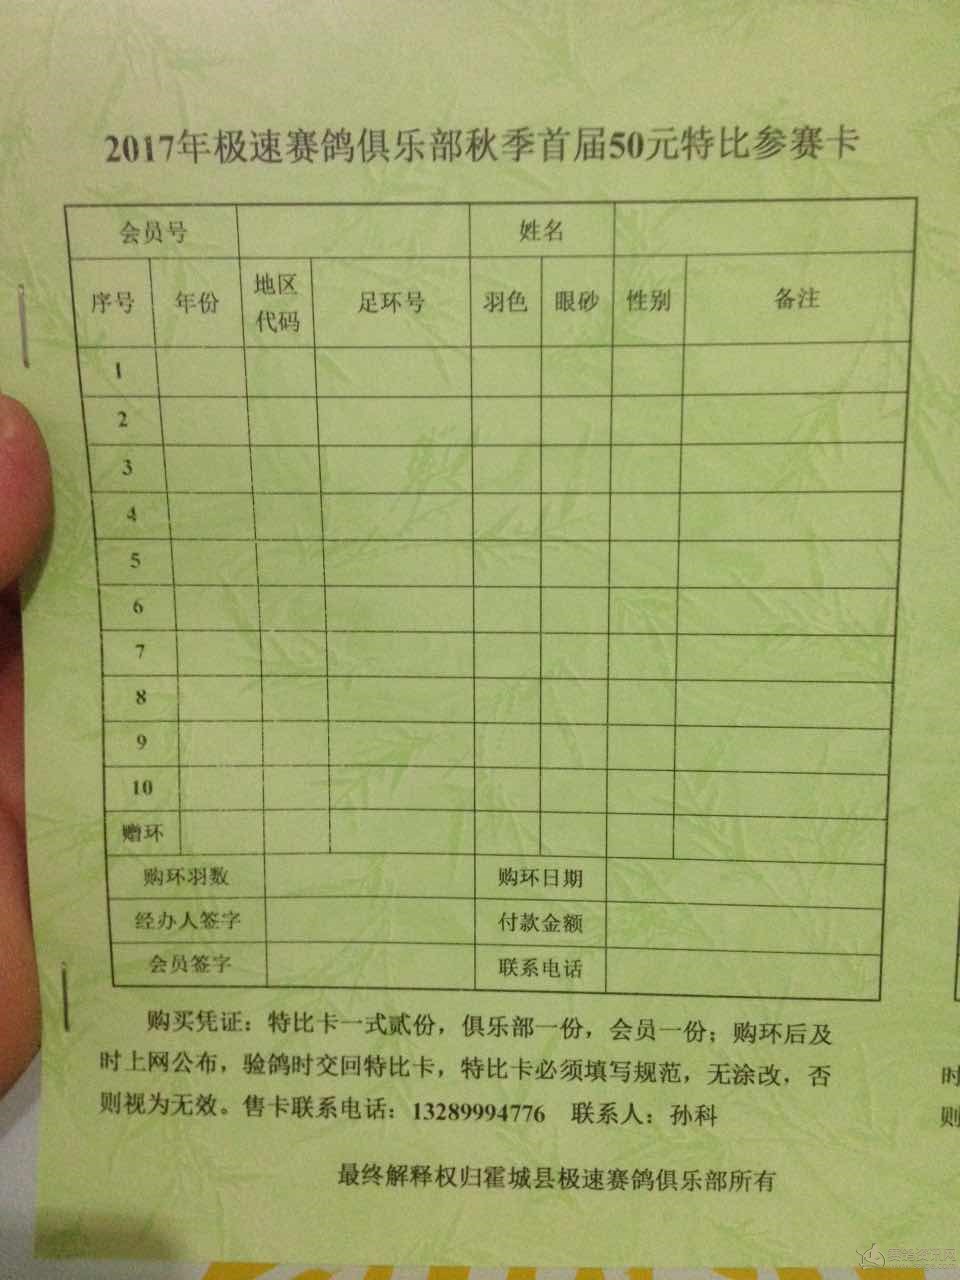 2017年极速赛鸽俱乐部秋季首届50元特比参赛卡
会员号 姓名
序号 年份 地区代码 足环号 羽色 眼砂 性别 备注
1
2
3
4
5
6
7
8
9
10
赠环
购环羽数 购环日期
经办人签字 付款金额
会员签字 联系电话
购买凭证：特比卡一式贰份，俱乐部一份，会员一份；购环后及
时上网公布，验鸽时交回特比卡，特比卡必须填写规范，无涂改，否
则视为无效。售卡联系电话：13289994776 联系人：孙科
最终解释权归霍城县极速赛鸽俱乐部所有
时
则